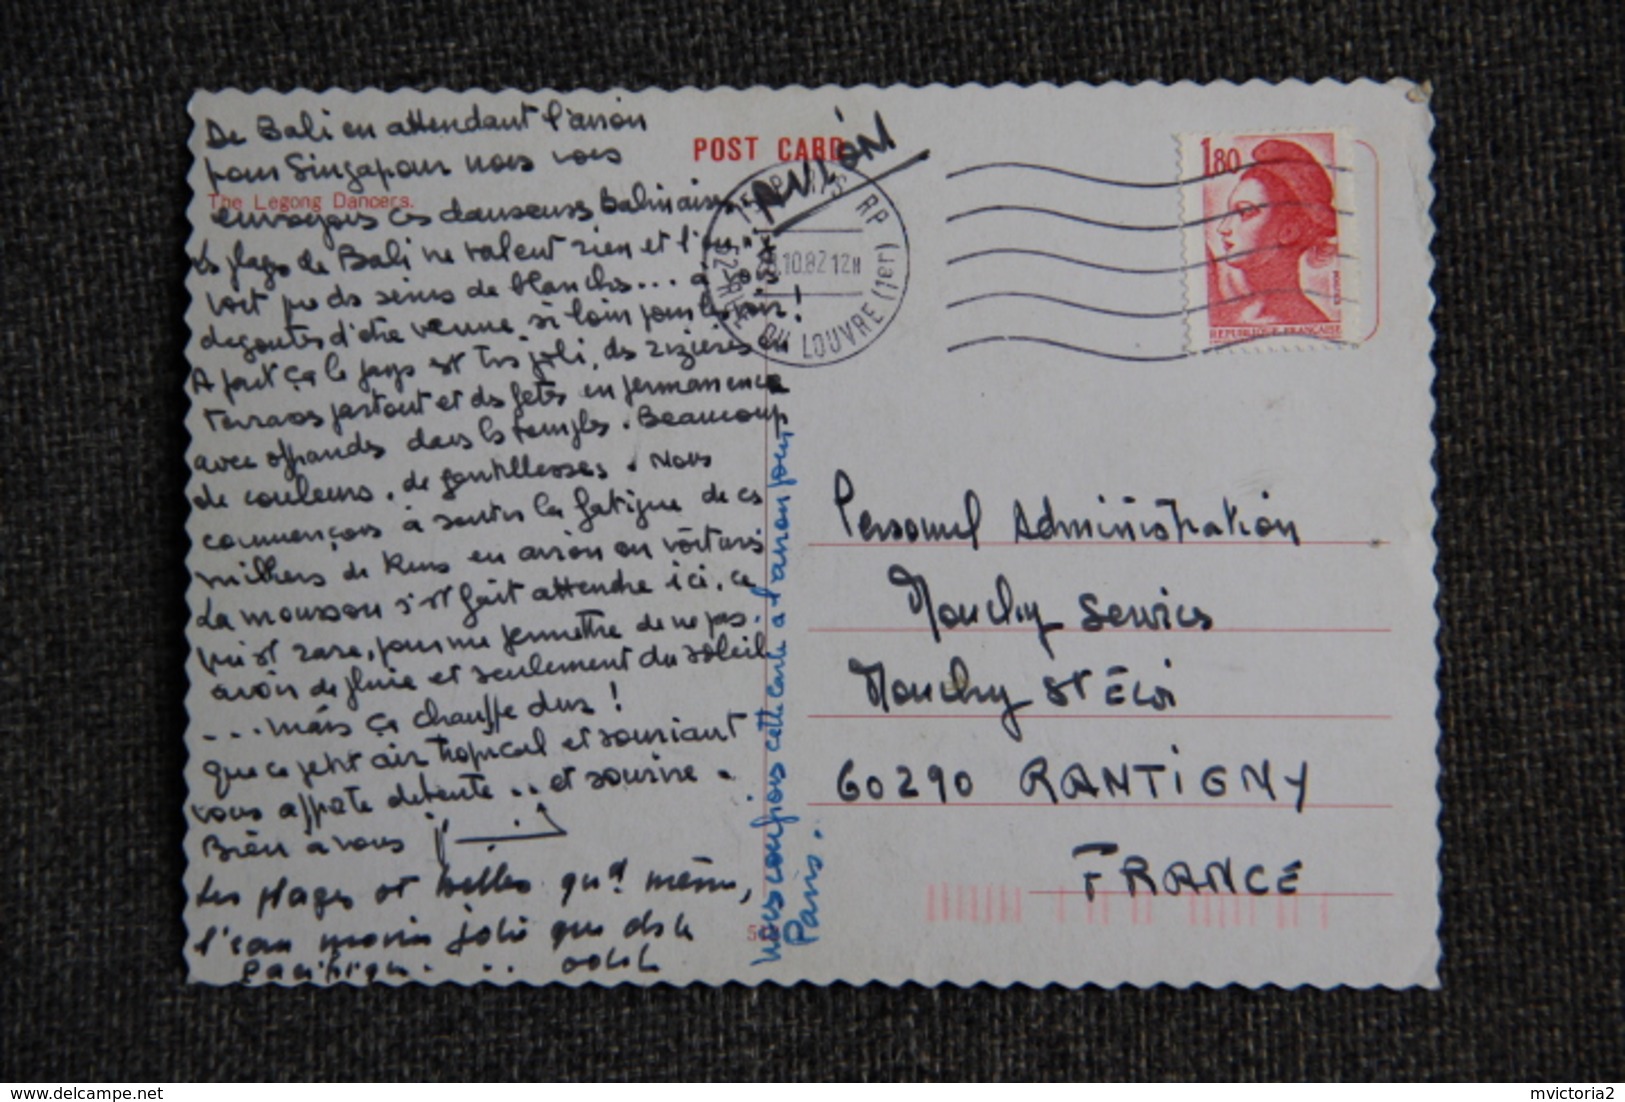 De Bali en attendant l'avion
pour Singapour nous vous
The Legong Dancers.
envoyons ces danseuses Balinaises
Les plages de Bali ne valent rien et l'on
voit peu de seins de blanches... à
degoutés d'être venue si loin pour les voir !
A part ça le pays est très joli, des rizières en
terrasses partout et des fetes en permanence
avec offrandes dans les temples. Beaucoup
de couleurs, de gentillesses. Nous
commençons à sentir la fatigue de ces
milliers de Kms en avion ou voitures
La mousson s'est fait attendre ici, ce
qui est rare, pour me permettre de ne pas
avoir de pluie et seulement du soleil
... mais ça chauffe dur !
Que ce petit air tropical et souriant
vous apporte detente .. et sourire.
Bien à vous
Les plages st belles qd même,
l'eau moins jolie que ds le
pacifique. ...
nous confions cette carte à l'avion pour
Paris.
POST CARD
AVION
PARIS RP
10.82 12H
52 RUE DU LOUVRE (1er)
1,80
REPUBLIQUE FRANÇAISE
Personnel Administration
Mouchy Services
Mouchy St Eloi
60290 RANTIGNY
FRANCE
mvictoria2